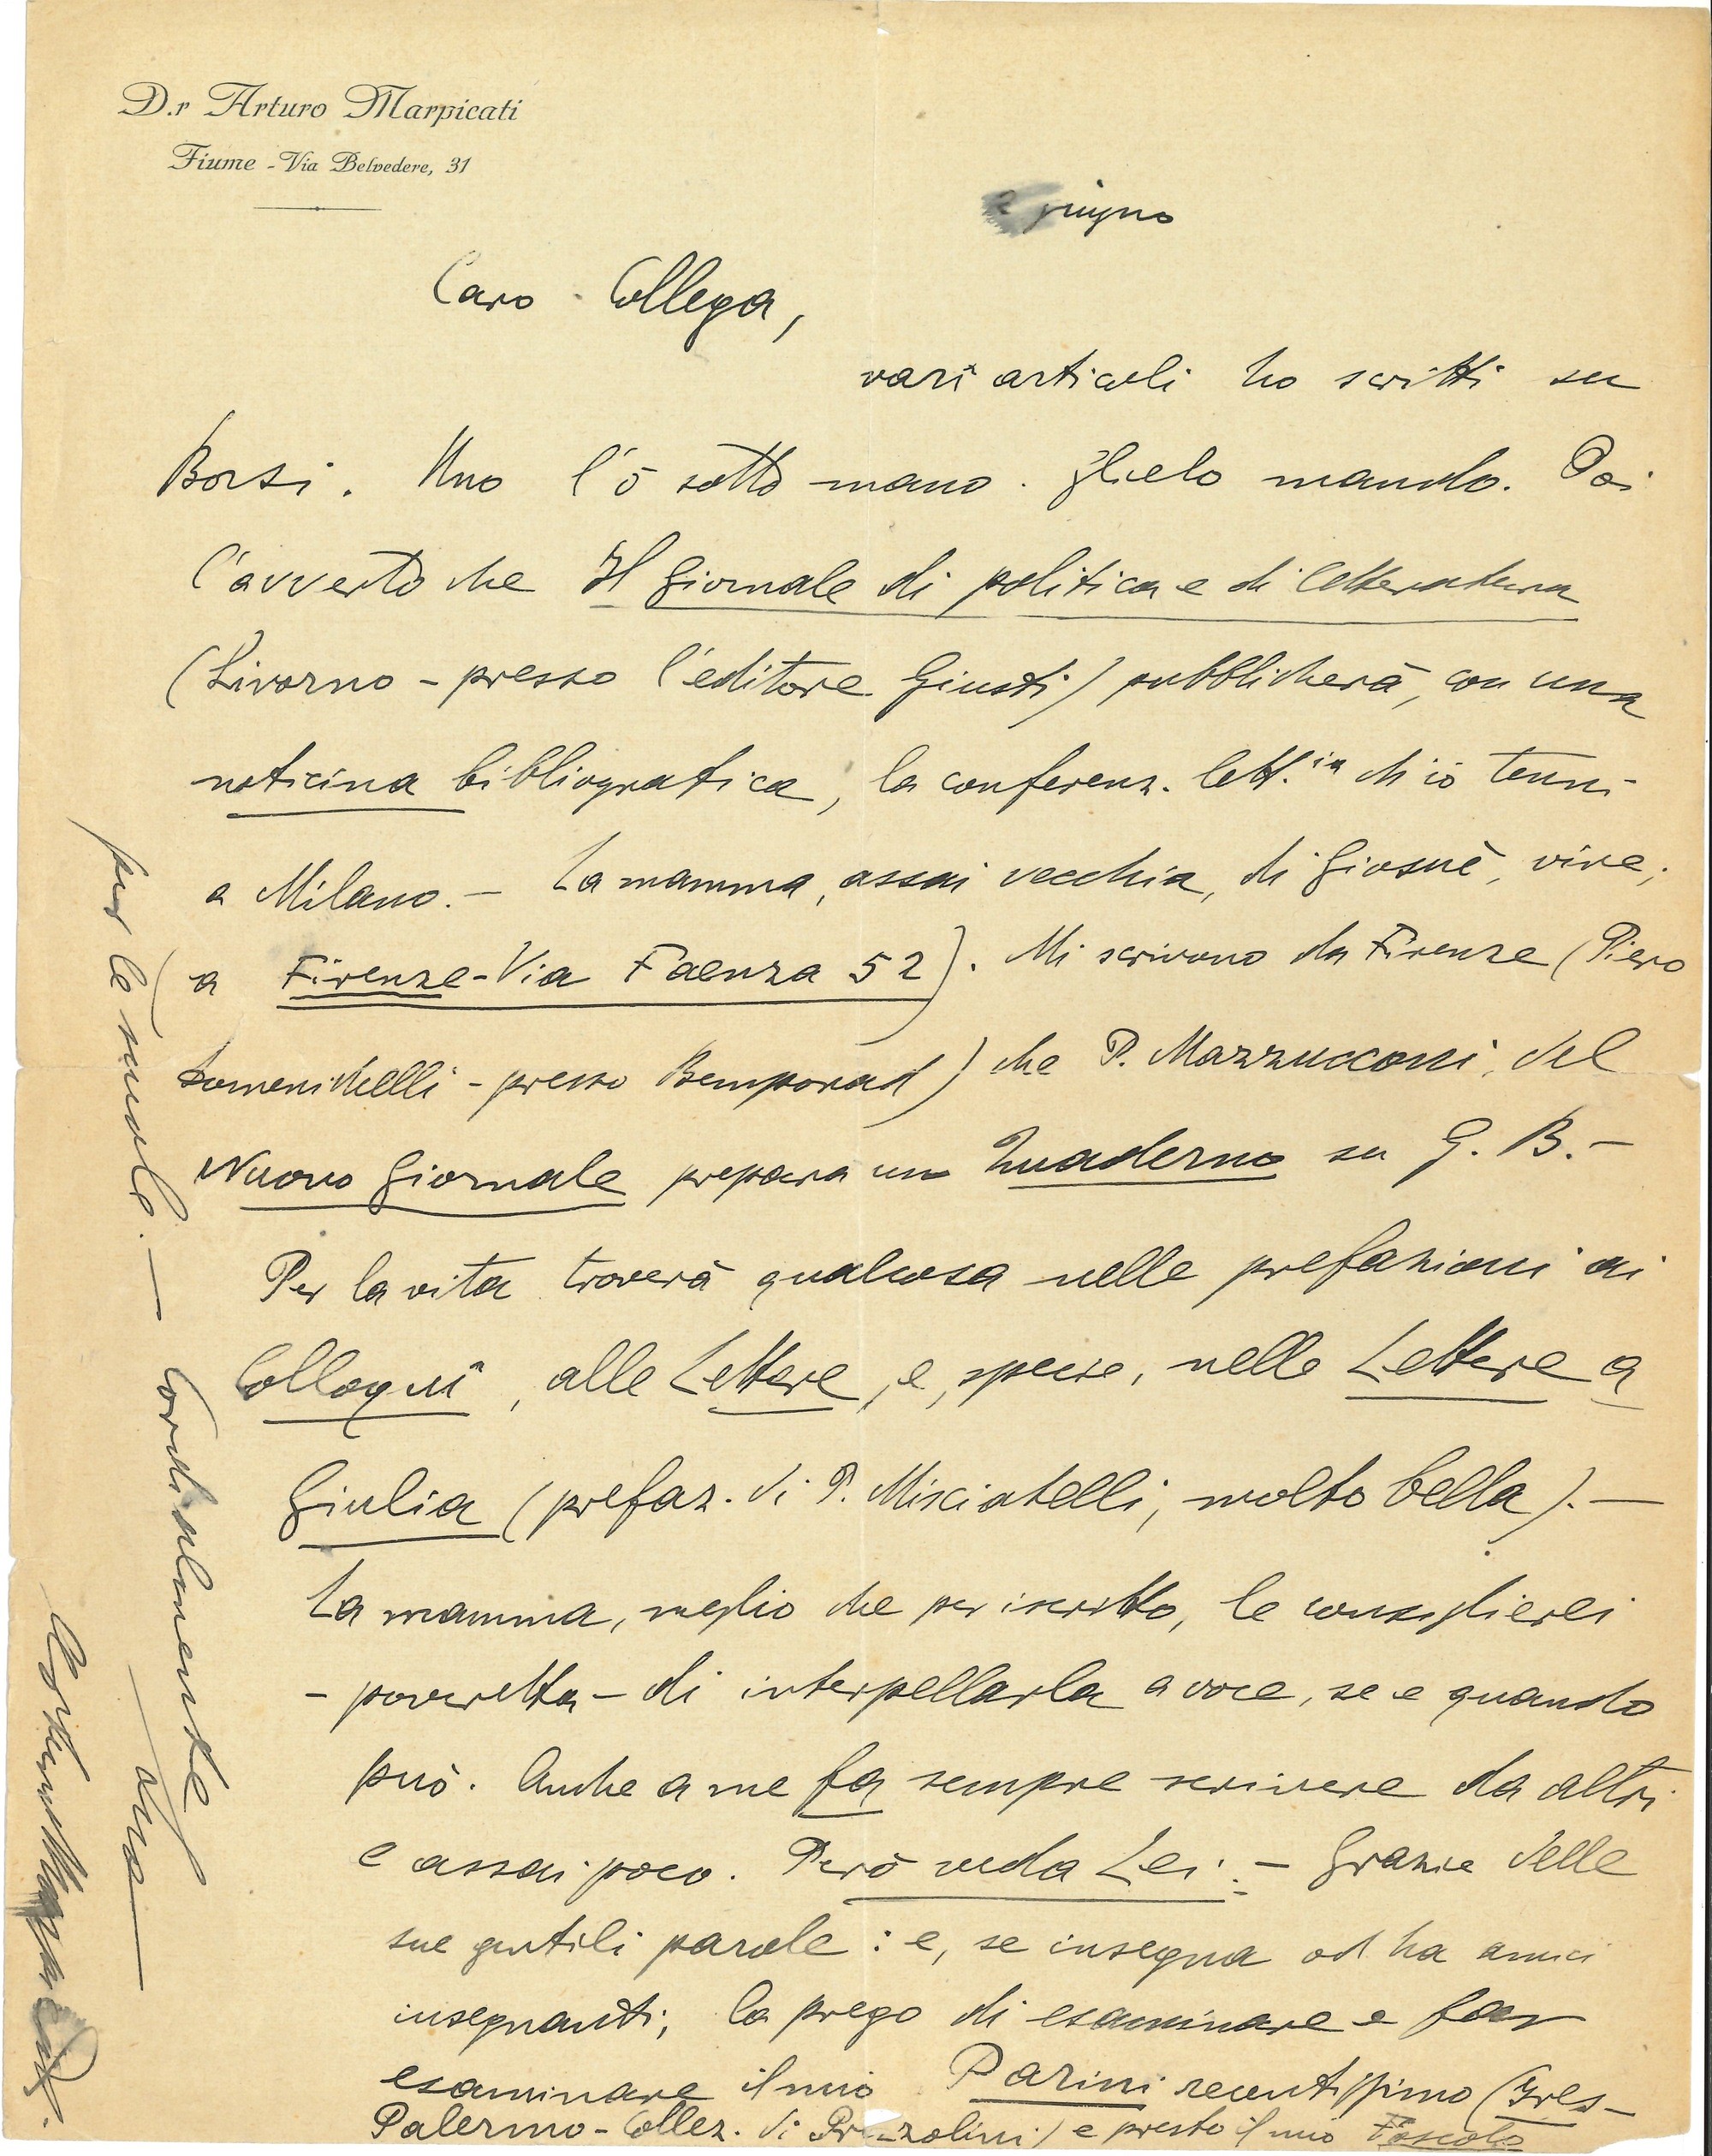 D.r Arturo Marpicati
Fiume - Via Belvedere, 31
giugno
Caro Collega,
vari articoli ho scritti su
Borsi. Uno l'ò sotto mano. Glielo mando. Poi
l'avverto che Il Giornale di politica e di letteratura
(Livorno - presso l'editore Giusti) pubblicherà, con una
noticina bibliografica, la conferenz. lett.ia ch'io tenni
a Milano. - La mamma, assai vecchia, di Giosuè, vive,
(a Firenze - Via Faenza 52). Mi scrivono da Firenze (Piero
Domenichelli - presso Bemporad) che P. Mazzucconi, del
Nuovo Giornale prepara un Quaderno su G. B. -
Per la vita troverà qualcosa nelle prefazioni ai
Colloqui, alle Lettere, e, specie, nelle Lettere a
Giulia (prefaz. di P. Misciatelli, molto bella). -
La mamma, meglio che per iscritto, le consiglierei
- poveretta - di interpellarla a voce, se e quando
può. Anche a me fa sempre scrivere da altri
e assai poco. Però veda Lei. - Grazie delle
sue gentili parole: e, se insegna od ha amici
insegnanti, la prego di esaminare e far
esaminare il mio Parini recentissimo (Ires -
Palermo - Collez. di Prezzolini) e presto il mio Foscolo
per le scuole. - Cordialmente
suo
Arturo Marpicati.